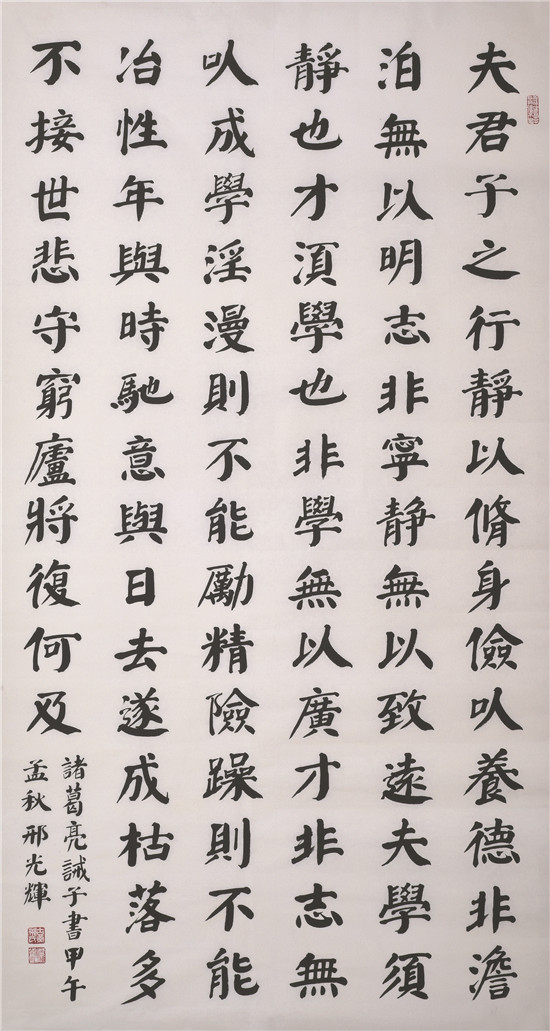 夫君子之行靜以脩身儉㕥養德非澹
泊無以明志非寧静無以致遠夫學須
靜也才湏學也非學無以廣才非志無
㕥成學淫漫則不能勵精險躁則不能
冶性年與時馳意與日去遂成枯落多
不接世悲守窮廬將復何及
諸葛亮誡子書甲午
孟秋邢光輝